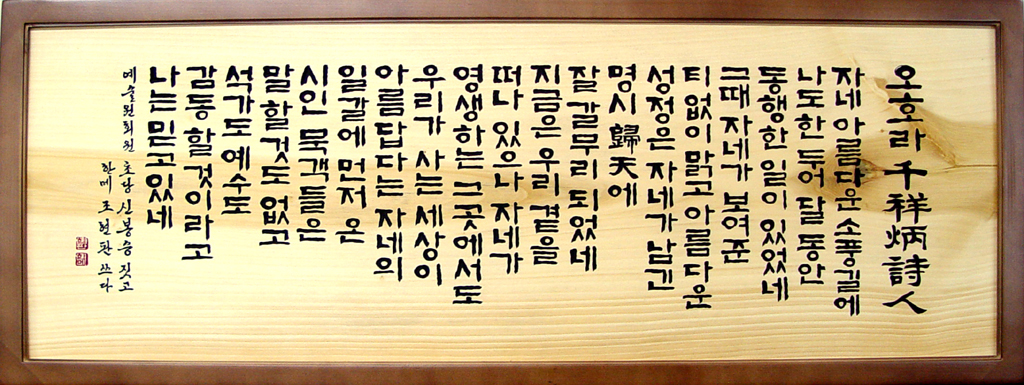 오호라 千祥炳 詩人
자네 아름다운 소풍길에
나도 한 두어 달 동안
동행한 일이 있었네
그때 자네가 보여준
티 없이 맑고 아름다운
성정은 자네가 남긴
명시 歸天에
잘 갈무리 되었네
지금은 우리 곁을
떠나 있으나 자네가
영생하는 그곳에서도
우리가 사는 세상이
아름답다는 자네의
일갈에 먼저 온
시인 묵객들은
말할 것도 없고
석가도 예수도
감동할 것이라고
나는 믿고 있네
예술원 회원 초당 신봉승 짓고
한메 조현판 쓰다